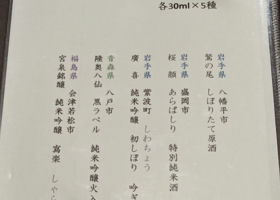 各30ml×5種
岩手県 八幡平市
鷲の尾 しぼりたて原酒
岩手県 盛岡市
桜顔 あらばしり 特別純米酒
岩手県 紫波町 しわちょう
廣喜 純米吟醸 初しぼり 吟ぎ
青森県 八戸市
陸奥八仙 黒ラベル 純米吟醸火入
福島県 会津若松市
宮泉銘醸 純米吟醸 寫楽 しゃら